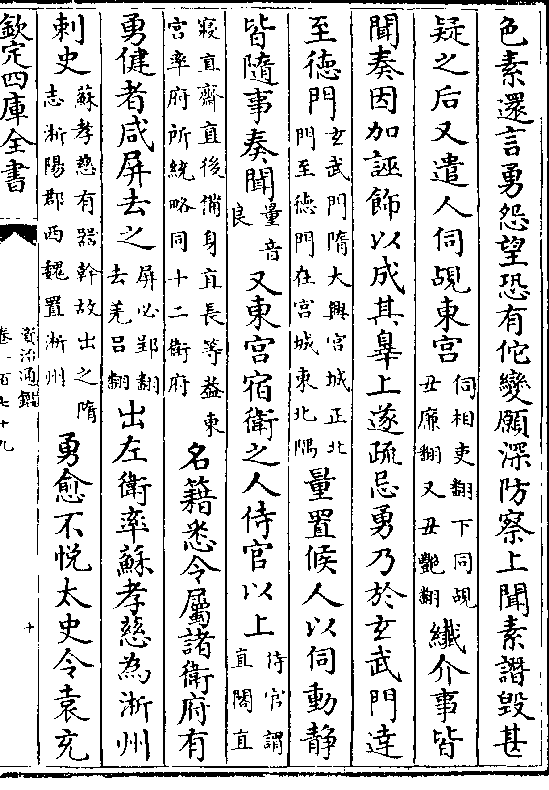 色素還言勇怨望恐有佗變願深防察上聞素譖毀甚
疑之后又遣人伺覘東宮伺相吏翻下同覘丑㢘翻又丑豔翻纖介事皆
聞奏因加誣飾以成其辠上遂疏忌勇乃於玄武門逹
至徳門玄武門隋大興宫城正北門至徳門在宫城東北隅量置候人以伺動静
皆隨事奏聞量音良又東宫宿衛之人侍官以上侍官謂直閤直
寢直齋直後備身直長等葢東宫率府所統略同十二衛府名籍悉令屬諸衛府有
勇健者咸屏去之屏必郢翻去羌吕翻出左衛率蘇孝慈為淅州
刺史蘇孝慈有器幹故出之隋志淅陽郡西魏置淅州勇愈不悦太史令袁充
欽定四庫全書
資治通鑑
卷一百七十九
十